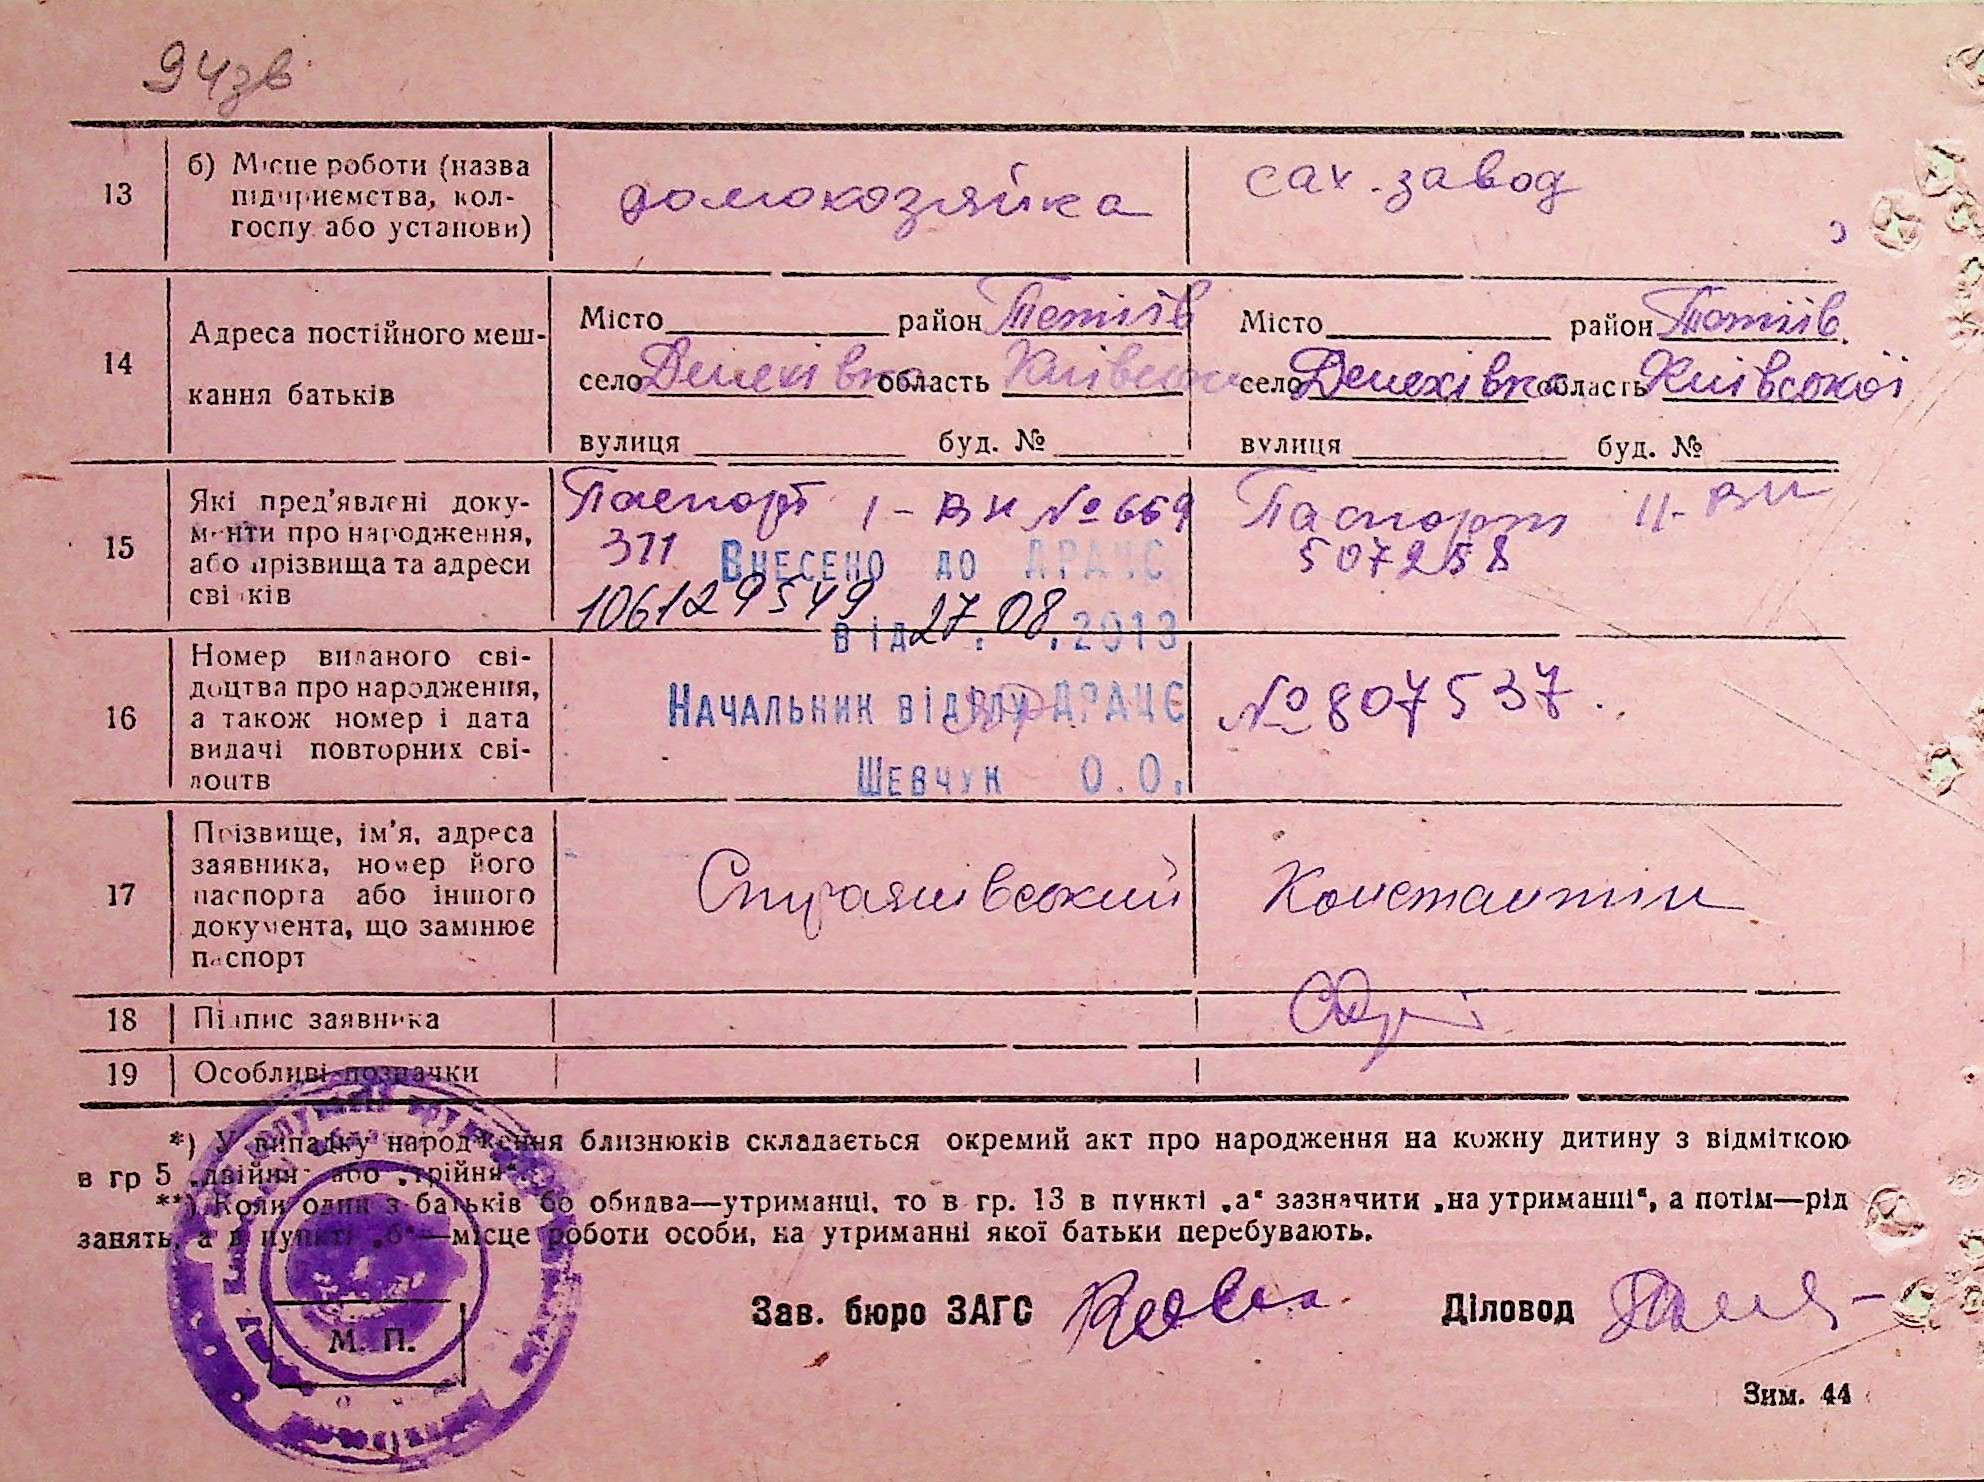 94зв
13
б) Місце роботи (назва
підприємства, кол-
госпу або установи)
домохозяйка
сах. завод
14
Адреса постійного меш-
кання батьків
Місто район Тетіїв
село Денехівка область Київська
вулиця буд. №
Місто район Тетіїв
село Денехівка область Київської
вулиця буд. №
15
Які пред'явлені доку-
менти про народження,
або прізвища та адреси
свідків
Паспорт I-ВИ № 669
311
Паспорт II-ВИ
507258
Внесено до ДРАЦС
106129549
від 27.08.2013
Начальник відділу ДРАЦС
Шевчук О.О.
16
Номер виданого сві-
доцтва про народження,
а також номер і дата
видачі повторних сві-
доцтв
№ 807537.
17
Прізвище, ім'я, адреса
заявника, номер його
паспорта або іншого
документа, що замінює
паспорт
Константин
18
Підпис заявника
19
Особливі позначки
*) У випадку народження близнюків складається окремий акт про народження на кожну дитину з відміткою
в гр 5 „двійня" або „трійня".
**) Коли один з батьків бо обидва—утриманці, то в гр. 13 в пункті „а" зазначити „на утриманні", а потім—рід
занять, а в пункті „б"—місце роботи особи, на утриманні якої батьки перебувають.
Зав. бюро ЗАГС
Діловод
М. П.
Зим. 44